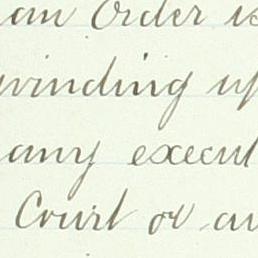 an Order is
winding up
any execut
Court or an